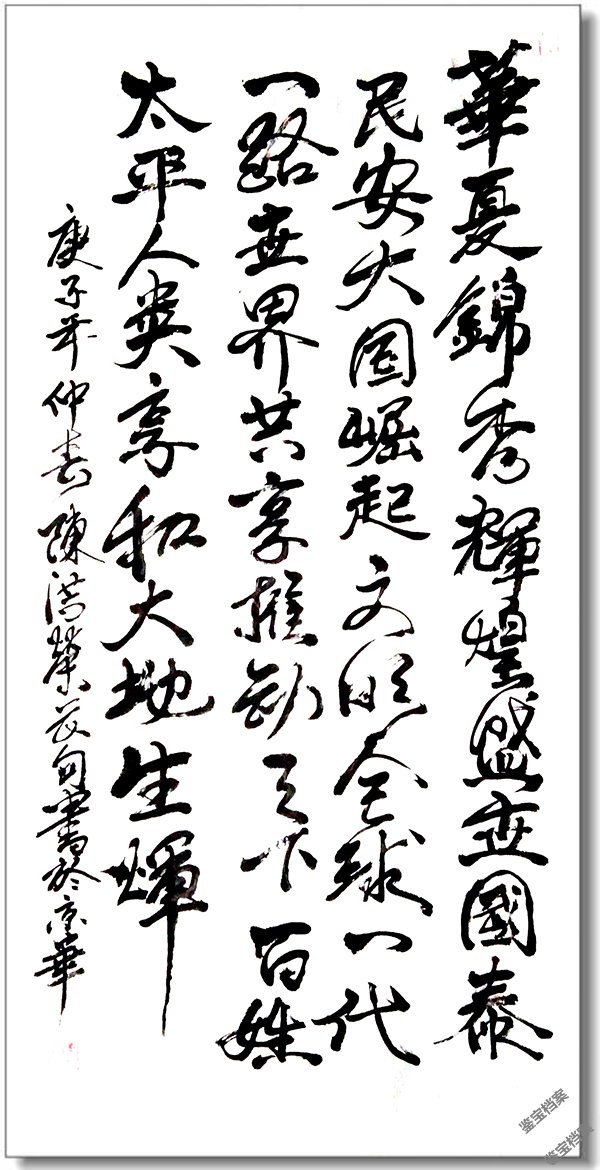 華夏錦秀輝煌盛世國泰
民安大国崛起文明全球一代
一路世界共享推動天下百姓
太平人类享和大地生輝
庚子年仲春陳洪榮句書於京華
鉴宝档案
鉴宝档